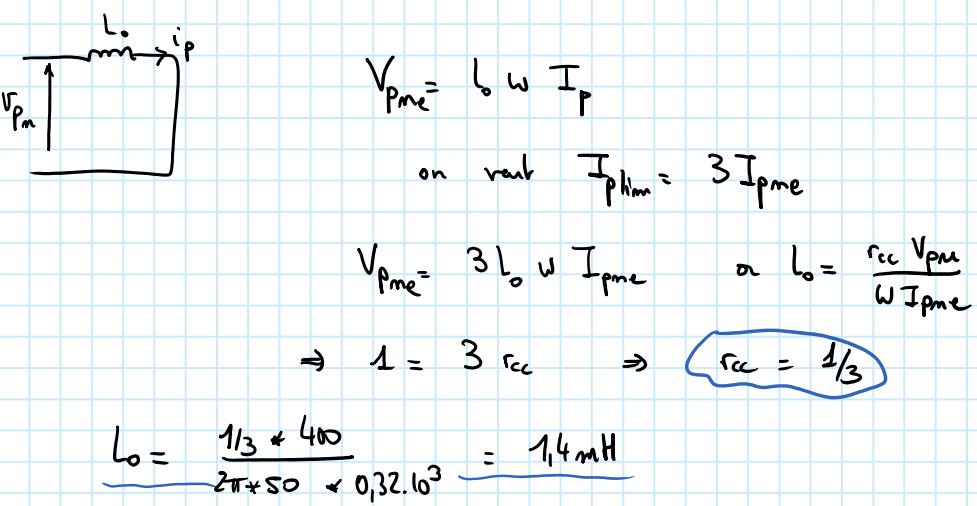 L₀
iₚ
Vₚₙ
Vₚₙₑ = L₀ ω Iₚ
on veut Iₚₗᵢₘ = 3 Iₚₙₑ
Vₚₙₑ = 3 L₀ ω Iₚₙₑ or L₀ = r_cc Vₚₙₑ / ω Iₚₙₑ
⇒ 1 = 3 r_cc ⇒ r_cc = 1/3
L₀ = 1/3 * 400 / 2π*50 * 0,32.10³ = 1,4 mH